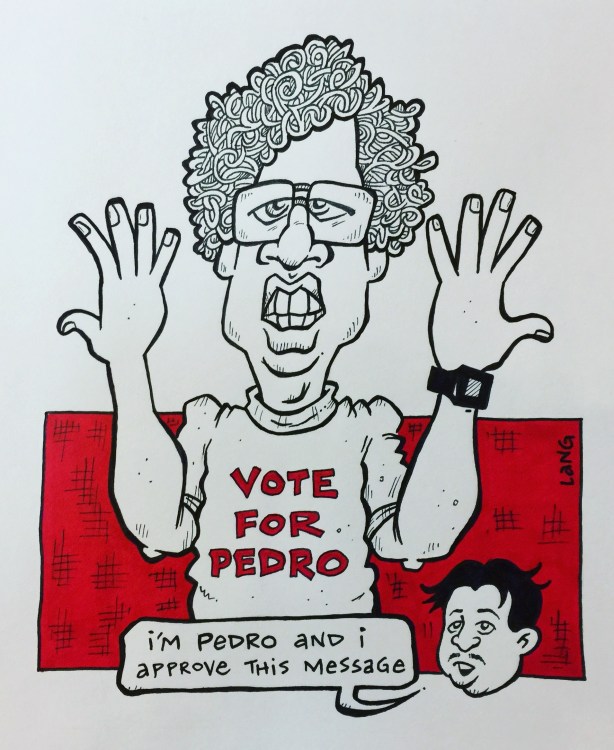 VOTE
FOR
PEDRO
LANG
i'm PeDRO AND i
APPROVE THiS MeSSAGe